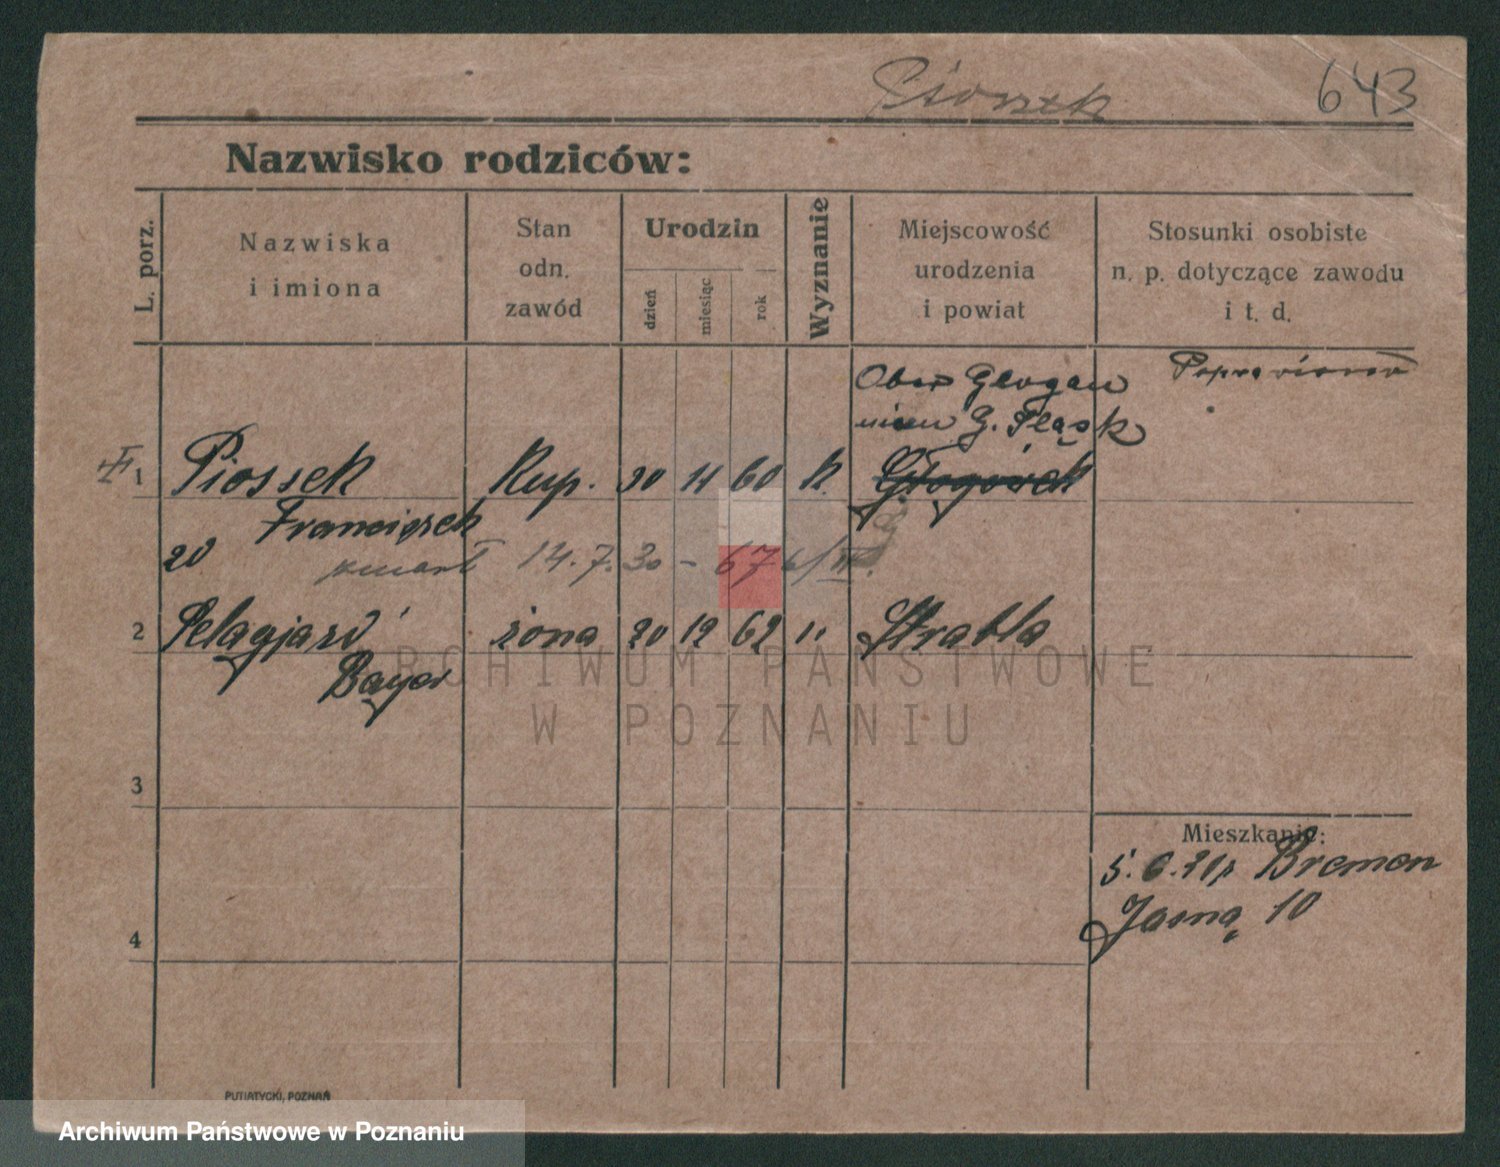 Piossek
643
Nazwisko rodziców:
L. porz.
Nazwiska
i imiona
Stan
odn.
zawód
Urodzin
dzień
miesiąc
rok
Wyznanie
Miejscowość
urodzenia
i powiat
Stosunki osobiste
n. p. dotyczące zawodu
i t. d.
Ober Glogau
G. Śląsk
1 Piossek Kup. 30 11 60 k. Głogówek
Franciszek
zmarł 14.7.30 - 67
2 Pelagja żona 20 12 62 " Strabla
Bayer
3
Mieszkanie:
Bremen
Jasna 10
4
PUTIATYCKI, POZNAŃ
ARCHIWUM PAŃSTWOWE
W POZNANIU
Archiwum Państwowe w Poznaniu